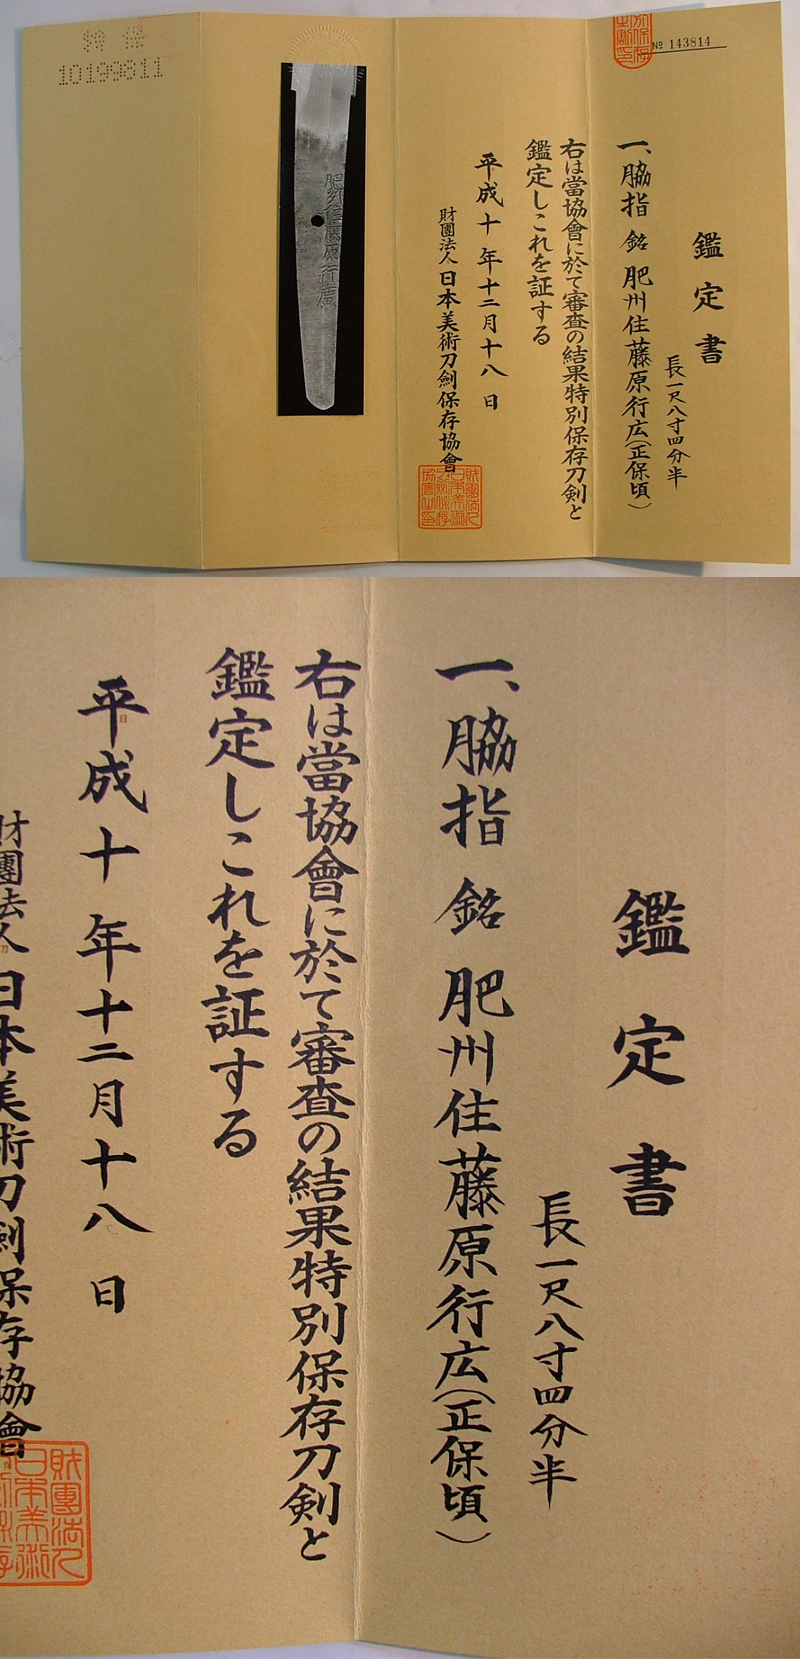 特保
10199811
肥州住藤原行廣
№ 143814
鑑定書
長一尺八寸四分半
一、脇指 銘 肥州住藤原行広(正保頃)
右は當協會に於て審査の結果特別保存刀剣と
鑑定しこれを証する
平成十年十二月十八日
財團法人日本美術刀劍保存協會
鑑定書
長一尺八寸四分半
一、脇指 銘 肥州住藤原行広(正保頃)
右は當協會に於て審査の結果特別保存刀剣と
鑑定しこれを証する
平成十年十二月十八日
財團法人日本美術刀劍保存協會